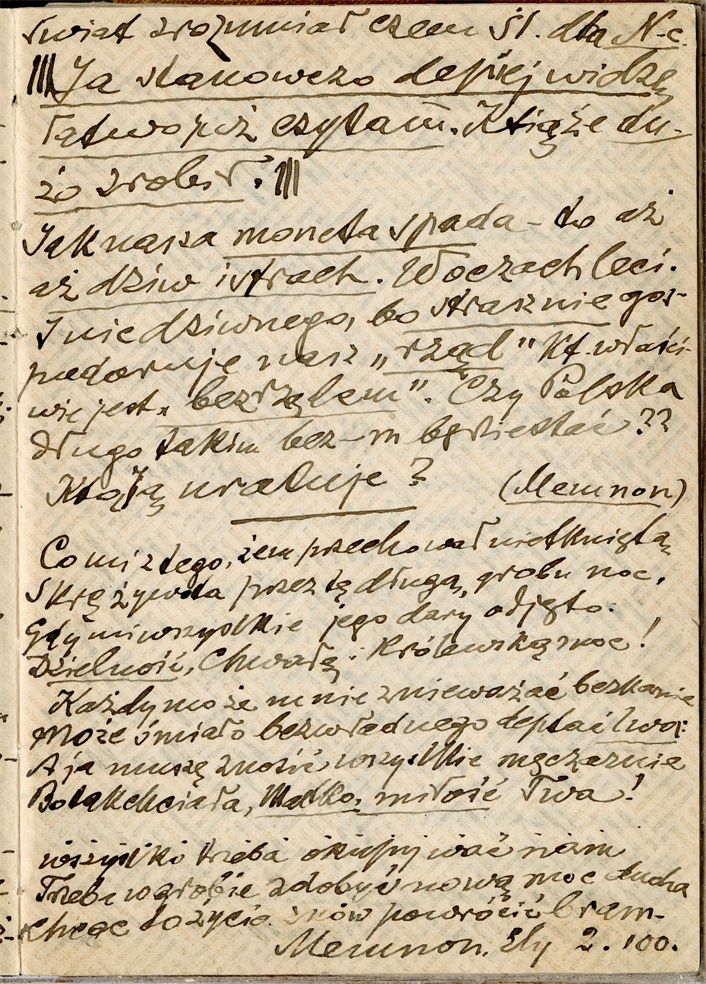 świat zrozumiał czem Sł. dla N-c.
Ja stanowczo lepiej widzę
łatwo już czytam. Książe du-
żo zrobił.
Jak nasza moneta spada – to aż
aż dziw i strach. W oczach leci.
I nie dziwnego, bo strasznie gos-
podaruje nasz „rząd" kt. właści-
wie jest „bezrządem". Czy Polska
długo takim bez-m będzie stać ??
Kto ją uratuje ?
(Memnon)
Co mi z tego, żem przechował nietkniętą
Skrę żywota przez tą długą, grobu noc,
Gdy mi wszystkie jego dary odjęto:
Dzielność, Chwałę i Królewską moc !
Każdy może mnie znieważać bezkarnie
Może śmiało bezwładnego deptać lwa:
A ja muszę znosić wszystkie męczarnie
Bo tak chciała, Matko, miłość Twa !
wszystko trzeba okupywać nam
Trzeba w grobie zdobyć nową moc ducha
Chcąc do życia znów powrócić bram-
Memnon. Ely 2. 100.